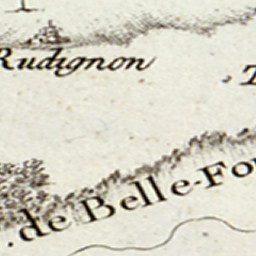 Rudignon
de Belle-Fo